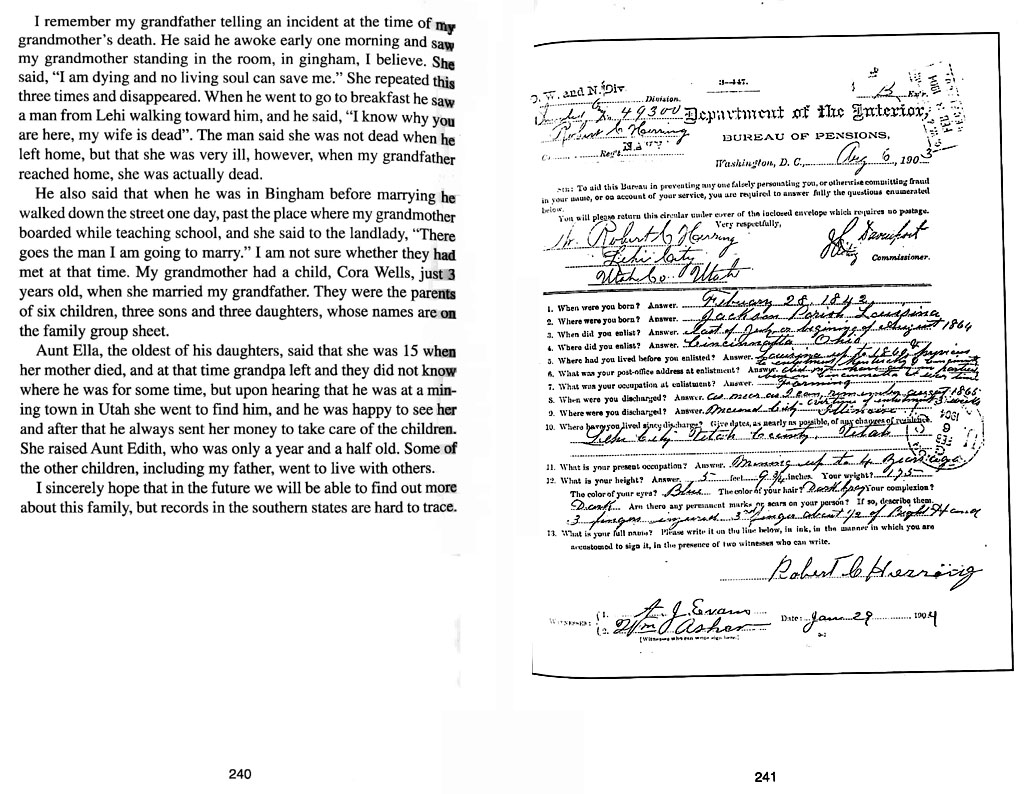 I remember my grandfather telling an incident at the time of my
grandmother's death. He said he awoke early one morning and saw
my grandmother standing in the room, in gingham, I believe. She
said, “I am dying and no living soul can save me.” She repeated this
three times and disappeared. When he went to go to breakfast he saw
a man from Lehi walking toward him, and he said, “I know why you
are here, my wife is dead”. The man said she was not dead when he
left home, but that she was very ill, however, when my grandfather
reached home, she was actually dead.
He also said that when he was in Bingham before marrying he
walked down the street one day, past the place where my grandmother
boarded while teaching school, and she said to the landlady, “There
goes the man I am going to marry.” I am not sure whether they had
met at that time. My grandmother had a child, Cora Wells, just 3
years old, when she married my grandfather. They were the parents
of six children, three sons and three daughters, whose names are on
the family group sheet.
Aunt Ella, the oldest of his daughters, said that she was 15 when
her mother died, and at that time grandpa left and they did not know
where he was for some time, but upon hearing that he was at a min-
ing town in Utah she went to find him, and he was happy to see her
and after that he always sent her money to take care of the children.
She raised Aunt Edith, who was only a year and a half old. Some of
the other children, including my father, went to live with others.
I sincerely hope that in the future we will be able to find out more
about this family, but records in the southern states are hard to trace.
240
3-447.
W. and N. Div
Division.
49300
Department of the Interior,
Robert C Herring
BUREAU OF PENSIONS,
Washington, D. C., Aug 6, 1903
SIR: To aid this Bureau in preventing any one falsely personating you, or otherwise committing fraud
in your name, or on account of your service, you are required to answer fully the questions enumerated
below.
You will please return this circular under cover of the inclosed envelope which requires no postage.
Very respectfully,
Robert C Herring
Lehi City
Utah Co. Utah
Commissioner.
1. When were you born? Answer. Febuary 28, 1842
2. Where were you born? Answer. Jackson Parish
3. When did you enlist? Answer. August 1864
4. Where did you enlist? Answer. Ohio
5. Where had you lived before you enlisted? Answer.
6. What was your post-office address at enlistment? Answer.
7. What was your occupation at enlistment? Answer. Farming
8. When were you discharged? Answer. August 1865
9. Where were you discharged? Answer. Mound City Illinois
10. Where have you lived since discharge? Give dates, as nearly as possible, of any changes of residence.
Lehi City Utah County, Utah
11. What is your present occupation? Answer. Mining up to
12. What is your height? Answer. 5 feet 9 3/4 inches. Your weight? 175
The color of your eyes? Blue The color of your hair? Dark Your complexion?
Dark Are there any permanent marks or scars on your person? If so, describe them.
3 fingers 3 finger about 1/2 of Right Hand
13. What is your full name? Please write it on the line below, in ink, in the manner in which you are
accustomed to sign it, in the presence of two witnesses who can write.
Robert C Herring
WITNESSES: 1. A. J. Evans
2. Wm Asher
[Witnesses who can write sign here.]
Date: Jan 29 1904
241